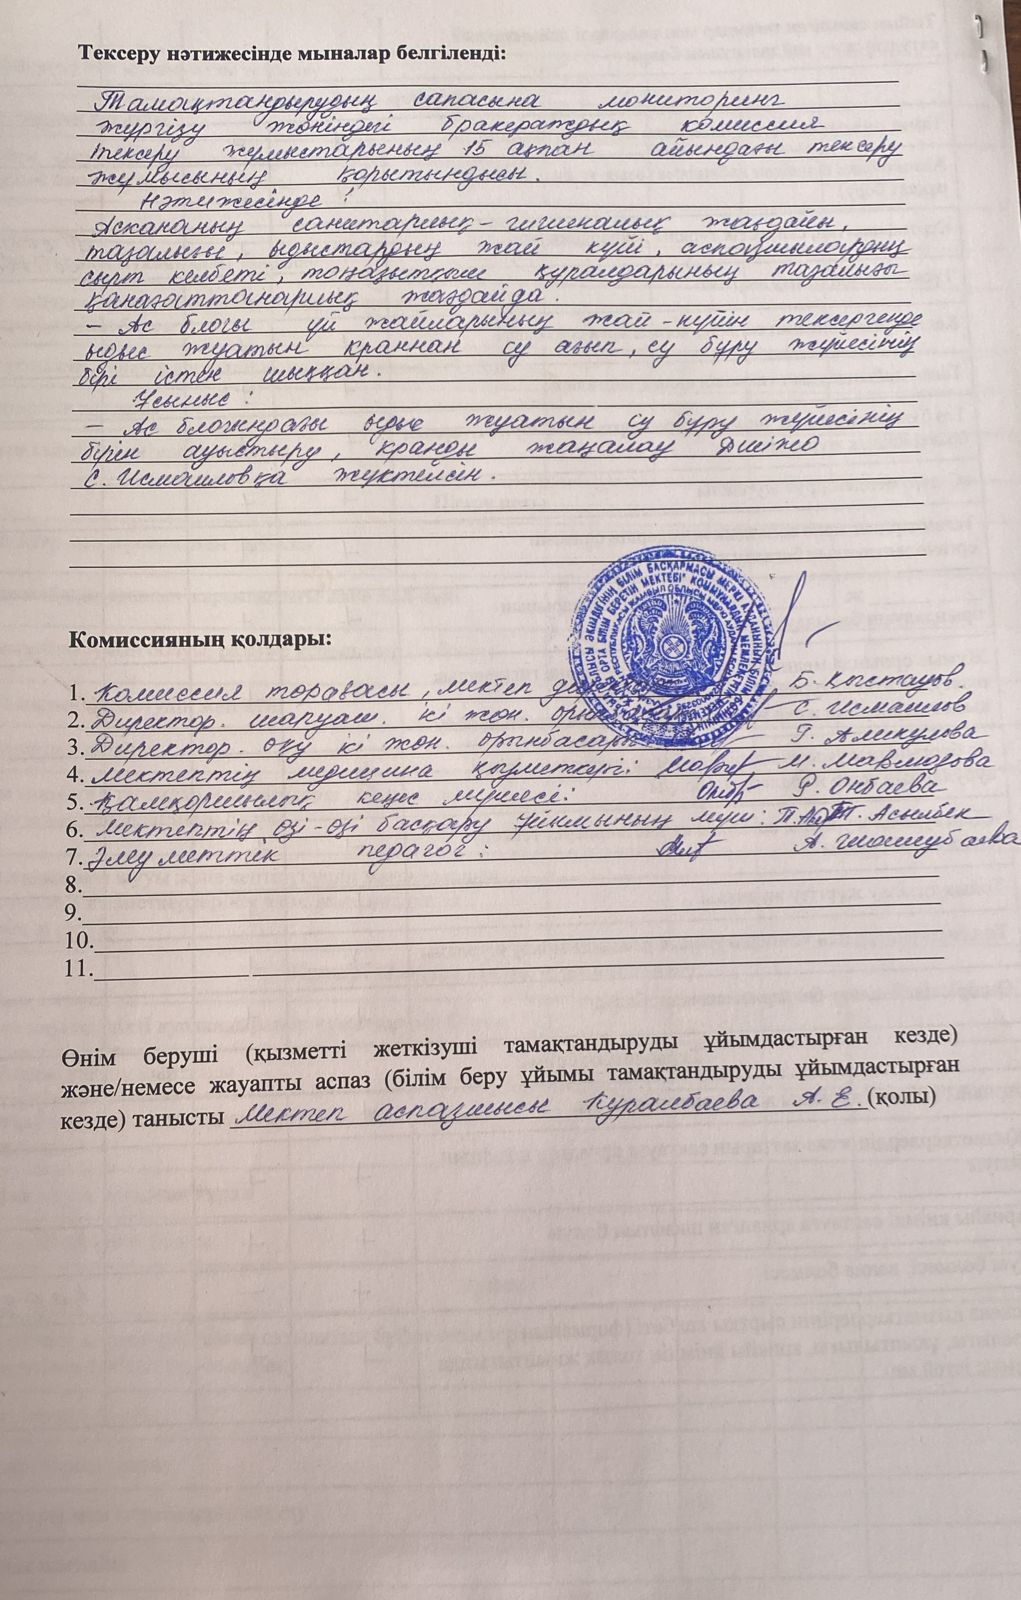 Тексеру нәтижесінде мыналар белгіленді:
Тамақтандырудың сапасына мониторинг
жүргізу жөніндегі бракераждық комиссия
тексеру жұмыстарының 15 ақпан айындағы тексеру
жұмысының қорытындысы.
Нәтижесінде:
Асхананың санитарлық-гигиеналық жағдайы,
тазалығы, ыдыстардың жай күйі, аспазшылардың
сырт келбеті, тоңазытқыш құралдарының тазалығы
қанағаттанарлық жағдайда.
- Ас блогы үй жайларының жай-күйін тексергенде
ыдыс жуатын краннан су ағып, су бұру жүйесінің
бірі істен шыққан.
Ұсыныс:
- Ас блогындағы ыдыс жуатын су бұру жүйесінің
бірін ауыстыру, кранды жаңалау ДШІЖО
С. Исмаиловқа жүктелсін.
Комиссияның қолдары:
1. Комиссия төрағасы, мектеп Б. Қыстауов.
2. Директор. шаруаш. ісі жөн. С. Исмаилов
3. Директор. оқу ісі жөн. орынбасары Г. Аликулова
4. Мектептің медицина қызметкері: М. Махмудова
5. Қамқоршылық кеңес мүшесі: Р. Онбаева
6. Мектептің өзі-өзі басқару ұйымының мүш: Т. Асылбек
7. Әлеуметтік педагог: А.
8.
9.
10.
11.
Өнім беруші (қызметті жеткізуші тамақтандыруды ұйымдастырған кезде)
және/немесе жауапты аспаз (білім беру ұйымы тамақтандыруды ұйымдастырған
кезде) танысты Мектеп аспазшысы Куралбаева А. Е. (қолы)